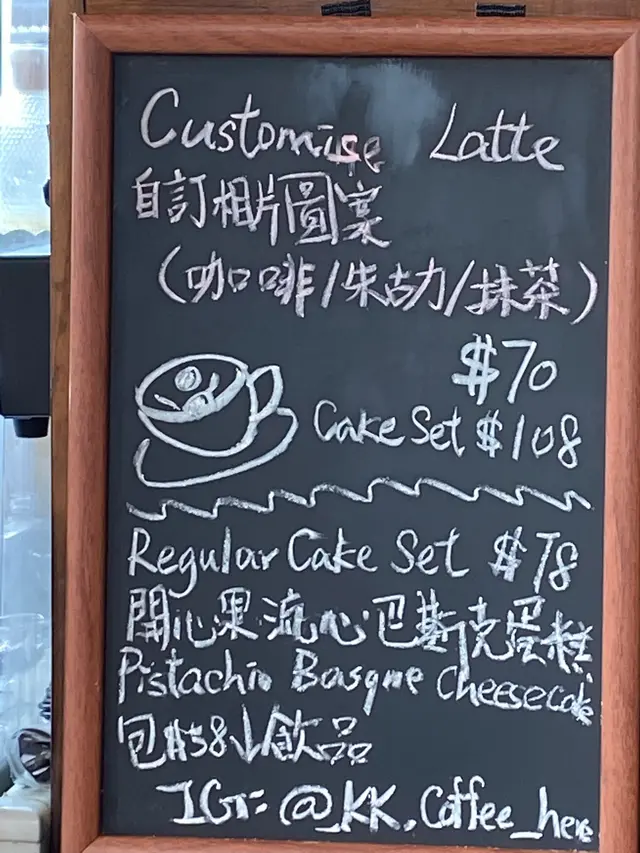 Customise Latte
自訂相片圖案
(咖啡/朱古力/抹茶)
$70
Cake Set $108
Regular Cake Set $78
開心果流心巴斯克蛋糕
Pistachio Basque Cheesecake
包$58↓飲品
IG: @_KK.Coffee_here